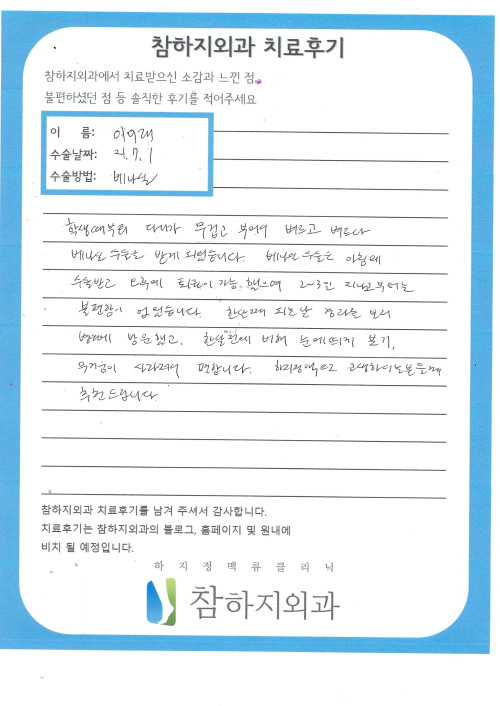 참하지외과 치료후기
참하지외과에서 치료받으신 소감과 느낀 점,
불편하셨던 점 등 솔직한 후기를 적어주세요
이 름:
수술날짜: 21. 7. 1
수술방법: 베나실
학생때부터 다리가 무겁고 부어서 벼르고 벼르다
베나실 수술을 받게 되었습니다. 베나실 수술은 아침에
수술받고 오후에 퇴원이 가능했으며 2~3일 지나고부터는
불편함이 없었습니다. 한달째 되는날 경과를 보러
병원에 방문했고, 한달전에 비해 눈에띄지 붓기,
무거움이 사라져서 편합니다. 하지정맥으로 고생하시는분들께
추천드립니다.
참하지외과 치료후기를 남겨 주셔서 감사합니다.
치료후기는 참하지외과의 블로그, 홈페이지 및 원내에
비치 될 예정입니다.
하지정맥류클리닉
참하지외과